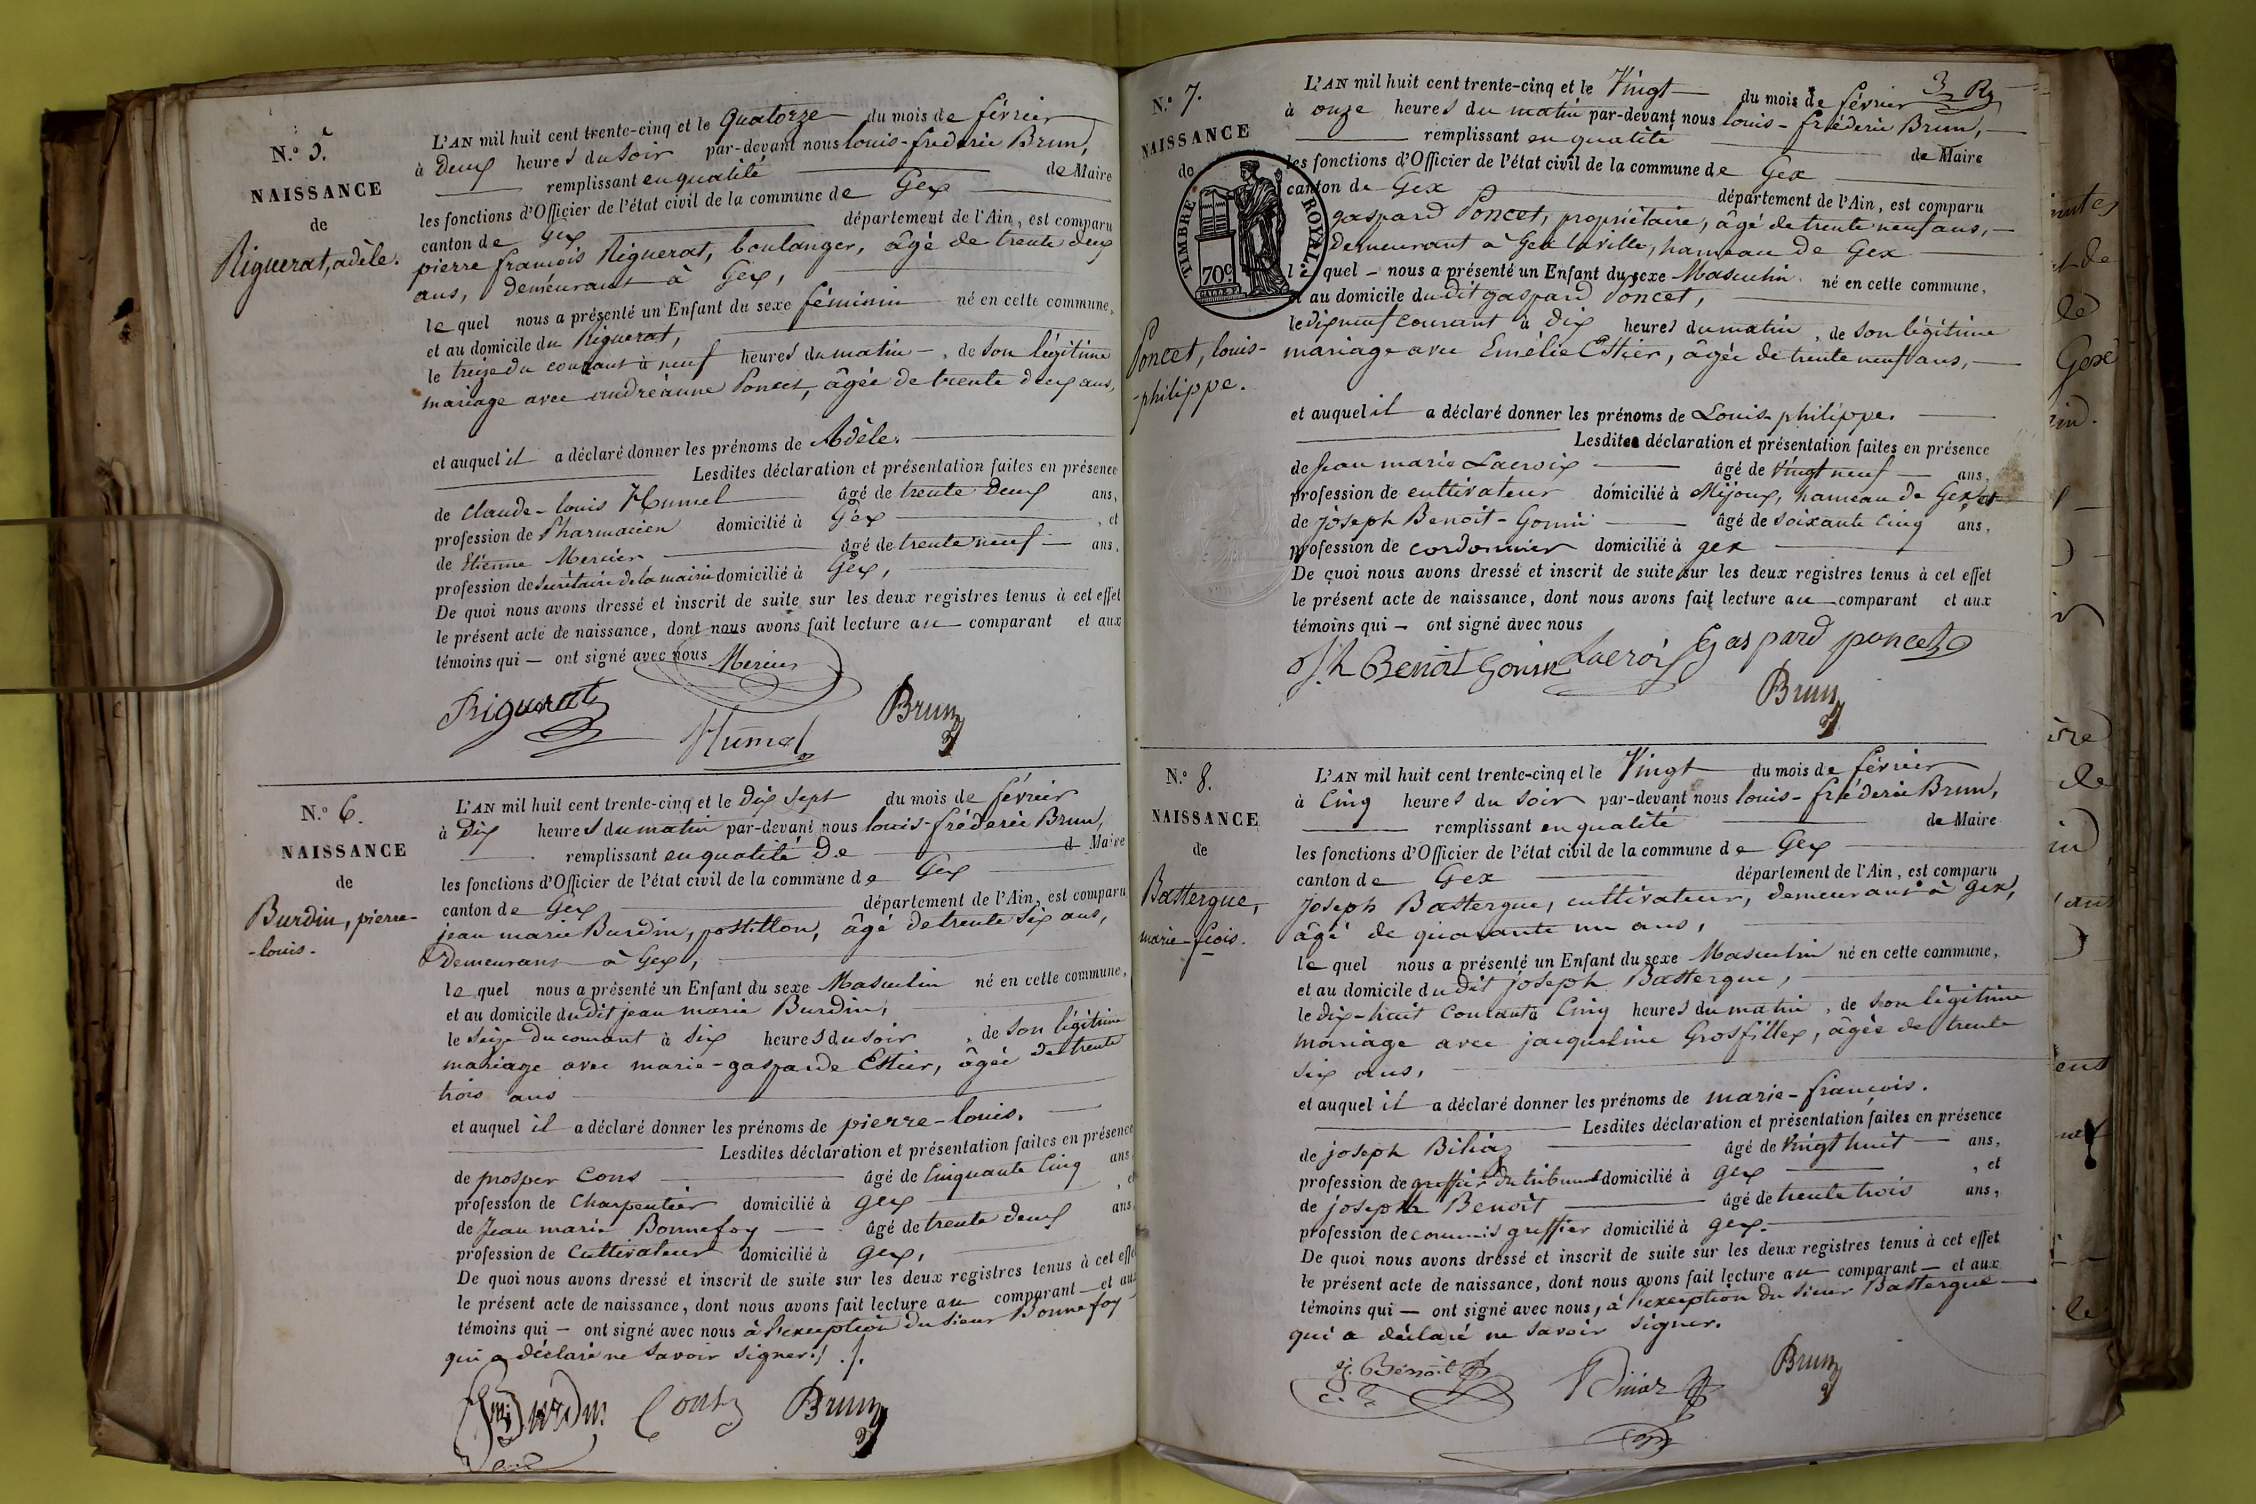 N.° 5.
NAISSANCE
de
Riguerat, adèle.
L'AN mil huit cent trente-cinq et le Quatorze du mois de février
à Deux heures du soir par-devant nous louis-frédéric Brun,
remplissant en qualité de Maire
les fonctions d'Officier de l'état civil de la commune de Gex
canton de Gex département de l'Ain, est comparu
pierre françois Riguerat, boulanger, âgé de trente deux
ans, demeurant à Gex,
lequel nous a présenté un Enfant du sexe féminin né en cette commune,
et au domicile du Riguerat,
le treize du courant à neuf heures du matin, de son légitime
mariage avec andréanne Poncet, âgée de trente deux ans,
et auquel il a déclaré donner les prénoms de Adèle.
Lesdites déclaration et présentation faites en présence
de claude-louis Hummel âgé de trente Deux ans,
profession de Pharmacien domicilié à Gex, et
de Etienne Mercier âgé de trente neuf ans,
profession de Secrétaire de la mairie domicilié à Gex,
De quoi nous avons dressé et inscrit de suite sur les deux registres tenus à cet effet
le présent acte de naissance, dont nous avons fait lecture au comparant et aux
témoins qui ont signé avec nous Mercier
Riguerat
Humel
Brun
N.° 6.
NAISSANCE
de
Burdin, pierre-
-louis.
L'AN mil huit cent trente-cinq et le Dix sept du mois de février
à Dix heures du matin par-devant nous louis-frédéric Brun,
remplissant en qualité De d Maire
les fonctions d'Officier de l'état civil de la commune de Gex
canton de Gex département de l'Ain, est comparu
jean marie Burdin, postillon, âgé de trente six ans,
Demeurant à Gex,
lequel nous a présenté un Enfant du sexe Masculin né en cette commune,
et au domicile dudit jean marie Burdin,
le seize du courant à six heures du soir, de son légitime
mariage avec marie-gasparde Estier, âgée de trente
trois ans
et auquel il a déclaré donner les prénoms de pierre-louis.
Lesdites déclaration et présentation faites en présence
de prosper Cons âgé de Cinquante Cinq ans
profession de Charpentier domicilié à gex, et
de Jean marie Bonnefoy âgé de trente Deux ans,
profession de Cultivateur domicilié à gex,
De quoi nous avons dressé et inscrit de suite sur les deux registres tenus à cet effet
le présent acte de naissance, dont nous avons fait lecture au comparant et aux
témoins qui ont signé avec nous à l'exception du sieur Bonnefoy
qui a déclaré ne savoir signer./.
Burdin Brun
3
N.° 7.
NAISSANCE
de
TIMBRE ROYAL.
70c
Poncet, louis-
-philippe.
L'AN mil huit cent trente-cinq et le Vingt du mois de février
à onze heures du matin par-devant nous louis-fréderic Brun,
remplissant en qualité de Maire
les fonctions d'Officier de l'état civil de la commune de Gex
canton de Gex département de l'Ain, est comparu
gaspard Poncet, propriétaire, âgé de trente neuf ans,
Demeurant à Gex la ville, hameau de Gex
lequel nous a présenté un Enfant du sexe Masculin né en cette commune,
et au domicile dudit gaspard Poncet,
le dix neuf courant à dix heures du matin, de son légitime
mariage avec Emélie Estier, âgée de trente neuf ans,
et auquel il a déclaré donner les prénoms de Louis philippe.
Lesdites déclaration et présentation faites en présence
de Jean marie Lacroix âgé de Vingt neuf ans,
profession de cultivateur domicilié à Mijoux, hameau de Gex, et
de joseph Benoit-Gonin âgé de soixante cinq ans,
profession de cordonnier domicilié à gex
De quoi nous avons dressé et inscrit de suite sur les deux registres tenus à cet effet
le présent acte de naissance, dont nous avons fait lecture au comparant et aux
témoins qui ont signé avec nous
Benoit Gonin Lacroix Gaspard poncet
Brun
N.° 8.
NAISSANCE
de
Bastergue,
marie-fçois.
L'AN mil huit cent trente-cinq et le Vingt du mois de février
à Cinq heures du soir par-devant nous louis-fréderic Brun,
remplissant en qualité de Maire
les fonctions d'Officier de l'état civil de la commune de Gex
canton de Gex département de l'Ain, est comparu
Joseph Bastergue, cultivateur, demeurant à gex,
âgé de quarante un ans,
lequel nous a présenté un Enfant du sexe Masculin né en cette commune,
et au domicile dudit joseph Bastergue,
le Dix-huit Courant à Cinq heures du matin, de son légitime
mariage avec jacqueline Grosfillex, âgée de trente
six ans,
et auquel il a déclaré donner les prénoms de marie-françois.
Lesdites déclaration et présentation faites en présence
de joseph âgé de Vingt huit ans,
profession de greffier du tribunal domicilié à gex, et
de joseph Benoit âgé de trente trois ans,
profession de commis greffier domicilié à gex.
De quoi nous avons dressé et inscrit de suite sur les deux registres tenus à cet effet
le présent acte de naissance, dont nous avons fait lecture au comparant et aux
témoins qui ont signé avec nous, à l'exception du sieur Bastergue
qui a déclaré ne savoir signer.
j. Benoit
Brun